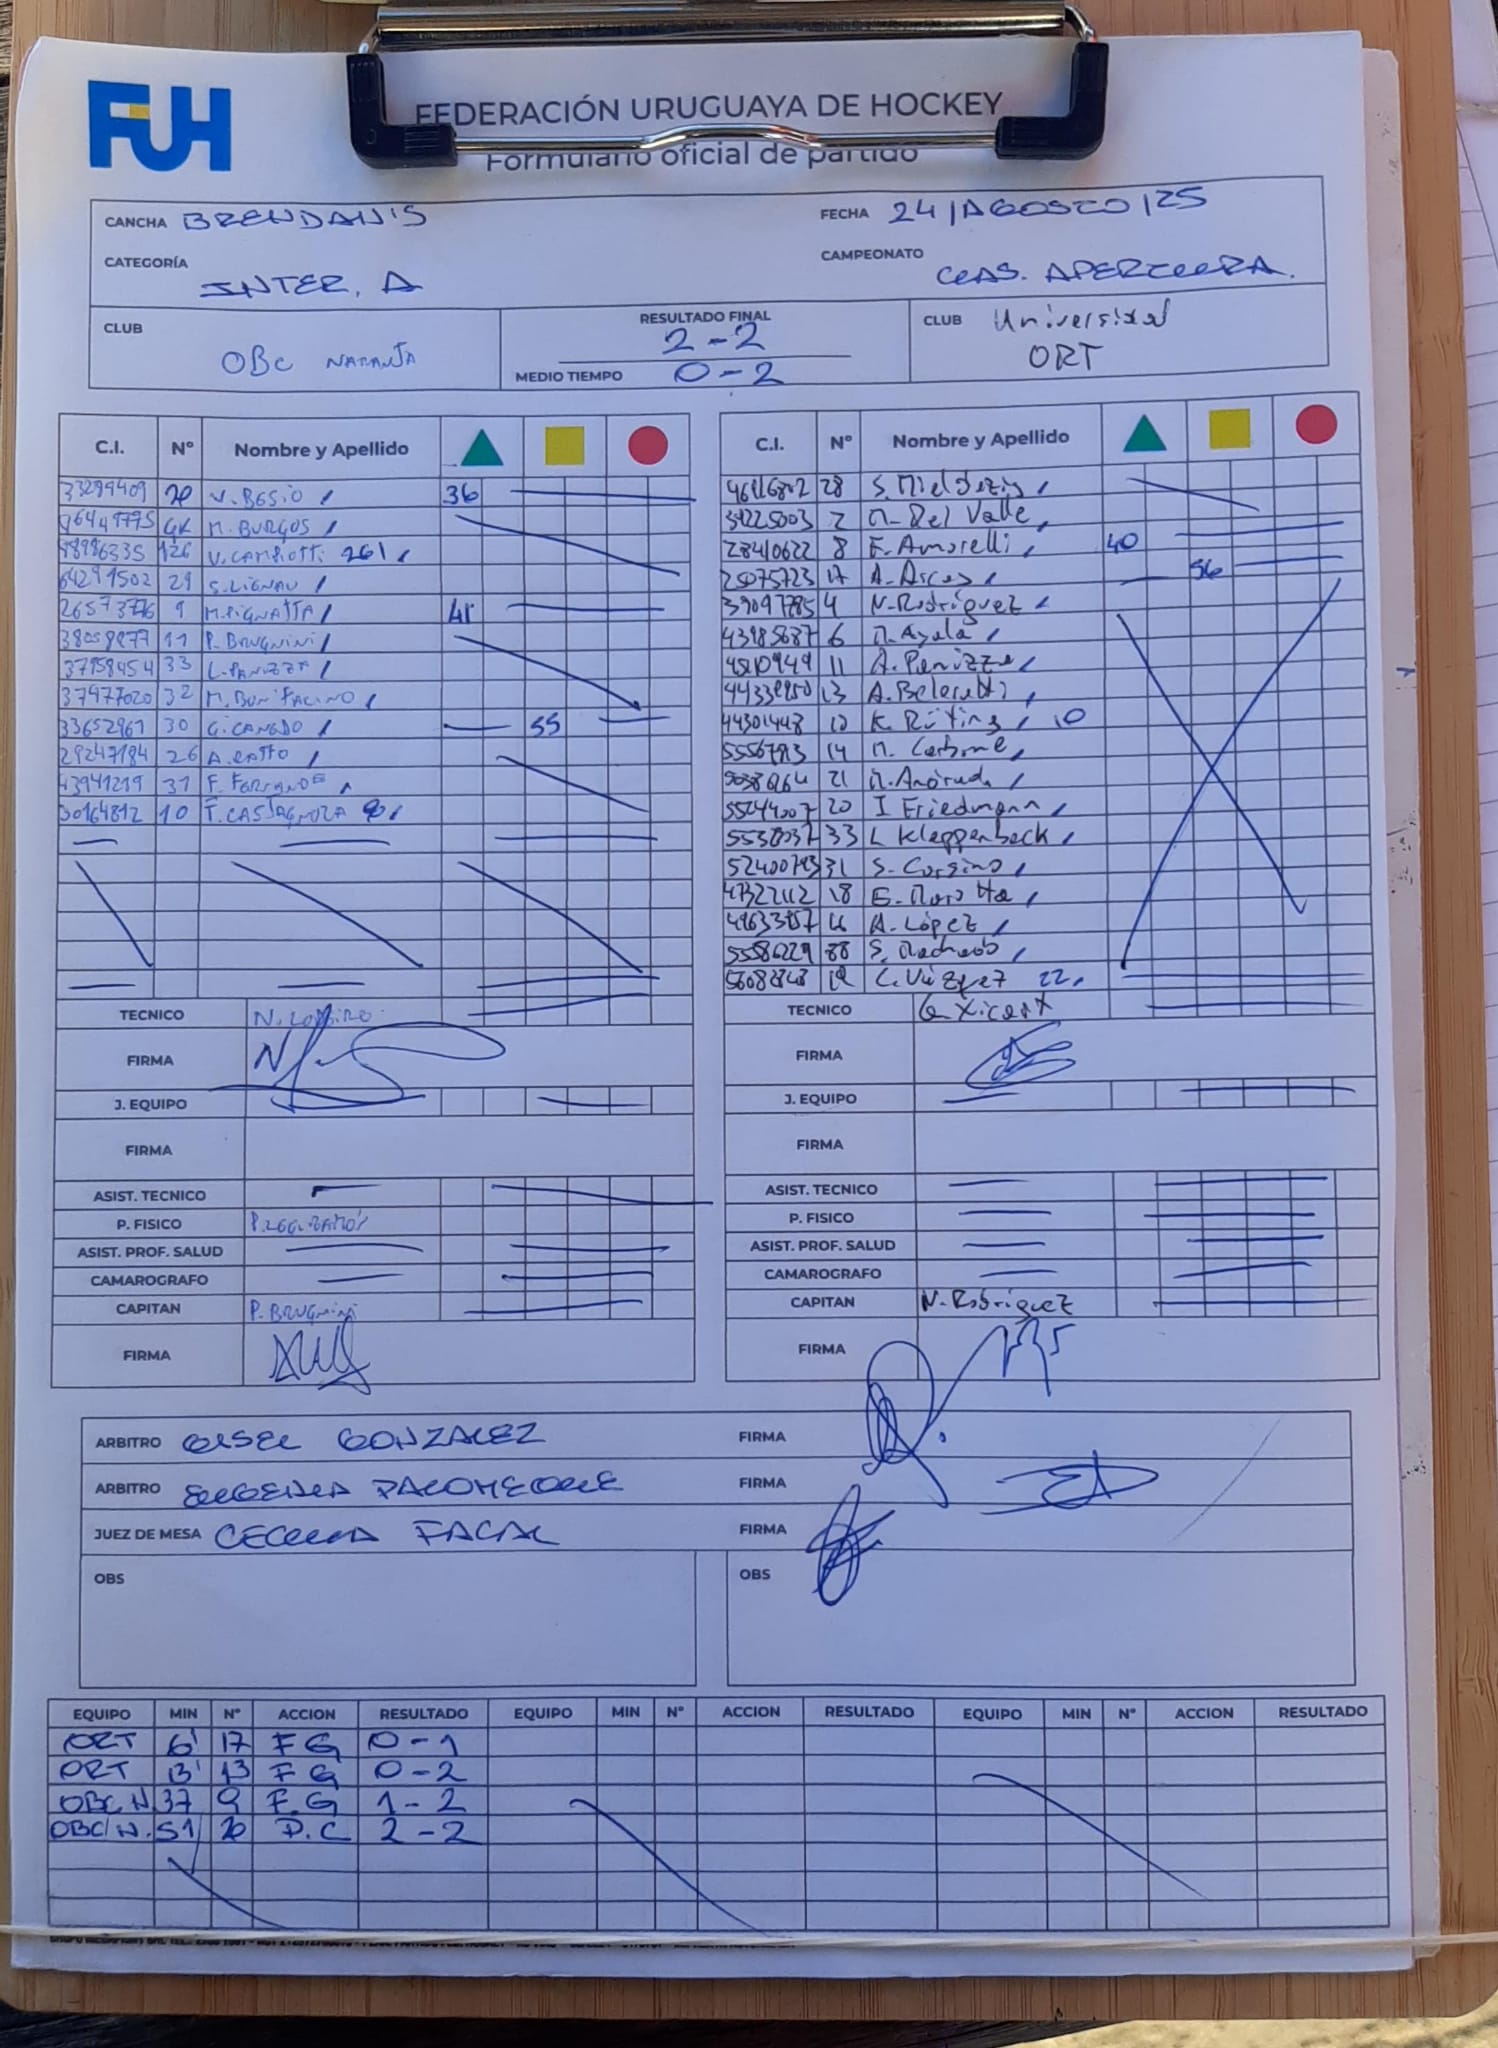 FUH
FEDERACIÓN URUGUAYA DE HOCKEY
Formulario oficial de partido
CANCHA BRENDAN'S FECHA 24/AGOSTO/25
CATEGORÍA INTER. A CAMPEONATO CLAS. APERTURA.
CLUB OBC NARANJA RESULTADO FINAL 2-2 CLUB Universidad ORT
MEDIO TIEMPO 0-2
C.I. Nº Nombre y Apellido C.I. Nº Nombre y Apellido
33299409 20 V. BOSIO 36
M. BURGOS
V. CAMPIOTTI 261
29 S. LIGNAU
9 M. PIGNATTA 41
11 P. BRUGNINI
37958454 33 L. PANIZZA
37977020 32 M. BONIFACINO
33652961 30 G. CANEDO 55
29247184 26 A. RATTO
43941219 31 F.
30164812 10 F. CASTAGNOLA
28 S.
2 M. Del Valle
28410622 8 F. Amorelli 40
25075723 17 A. Arcos 56
39047785 4 N. Rodríguez
43985687 6 M. Ayala
11 A. Panizza
13 A.
44301448 10 K. Rüting 10
14 M. Carbone
21 M. Andrada
55244007 20 I Friedmann
33 L Kleppenbeck
31 S. Corsino
47322112 18 E. Marotta
A. López
55586229 88 S. Machado
C. Vázquez 22
TECNICO TECNICO G. Xicart
FIRMA FIRMA
J. EQUIPO J. EQUIPO
FIRMA FIRMA
ASIST. TECNICO ASIST. TECNICO
P. FISICO P. FISICO
ASIST. PROF. SALUD ASIST. PROF. SALUD
CAMAROGRAFO CAMAROGRAFO
CAPITAN P. BRUGNINI CAPITAN N. Rodriguez
FIRMA FIRMA
ARBITRO GISEL GONZALEZ FIRMA
ARBITRO EUGENIA PALOMEQUE FIRMA
JUEZ DE MESA CECILIA FACAL FIRMA
OBS OBS
EQUIPO MIN Nº ACCION RESULTADO EQUIPO MIN Nº ACCION RESULTADO EQUIPO MIN Nº ACCION RESULTADO
ORT 6' 17 F G 0-1
ORT 13' 13 F G 0-2
OBC N. 37 9 F.G 1-2
OBC/N. 51 20 P.C 2-2